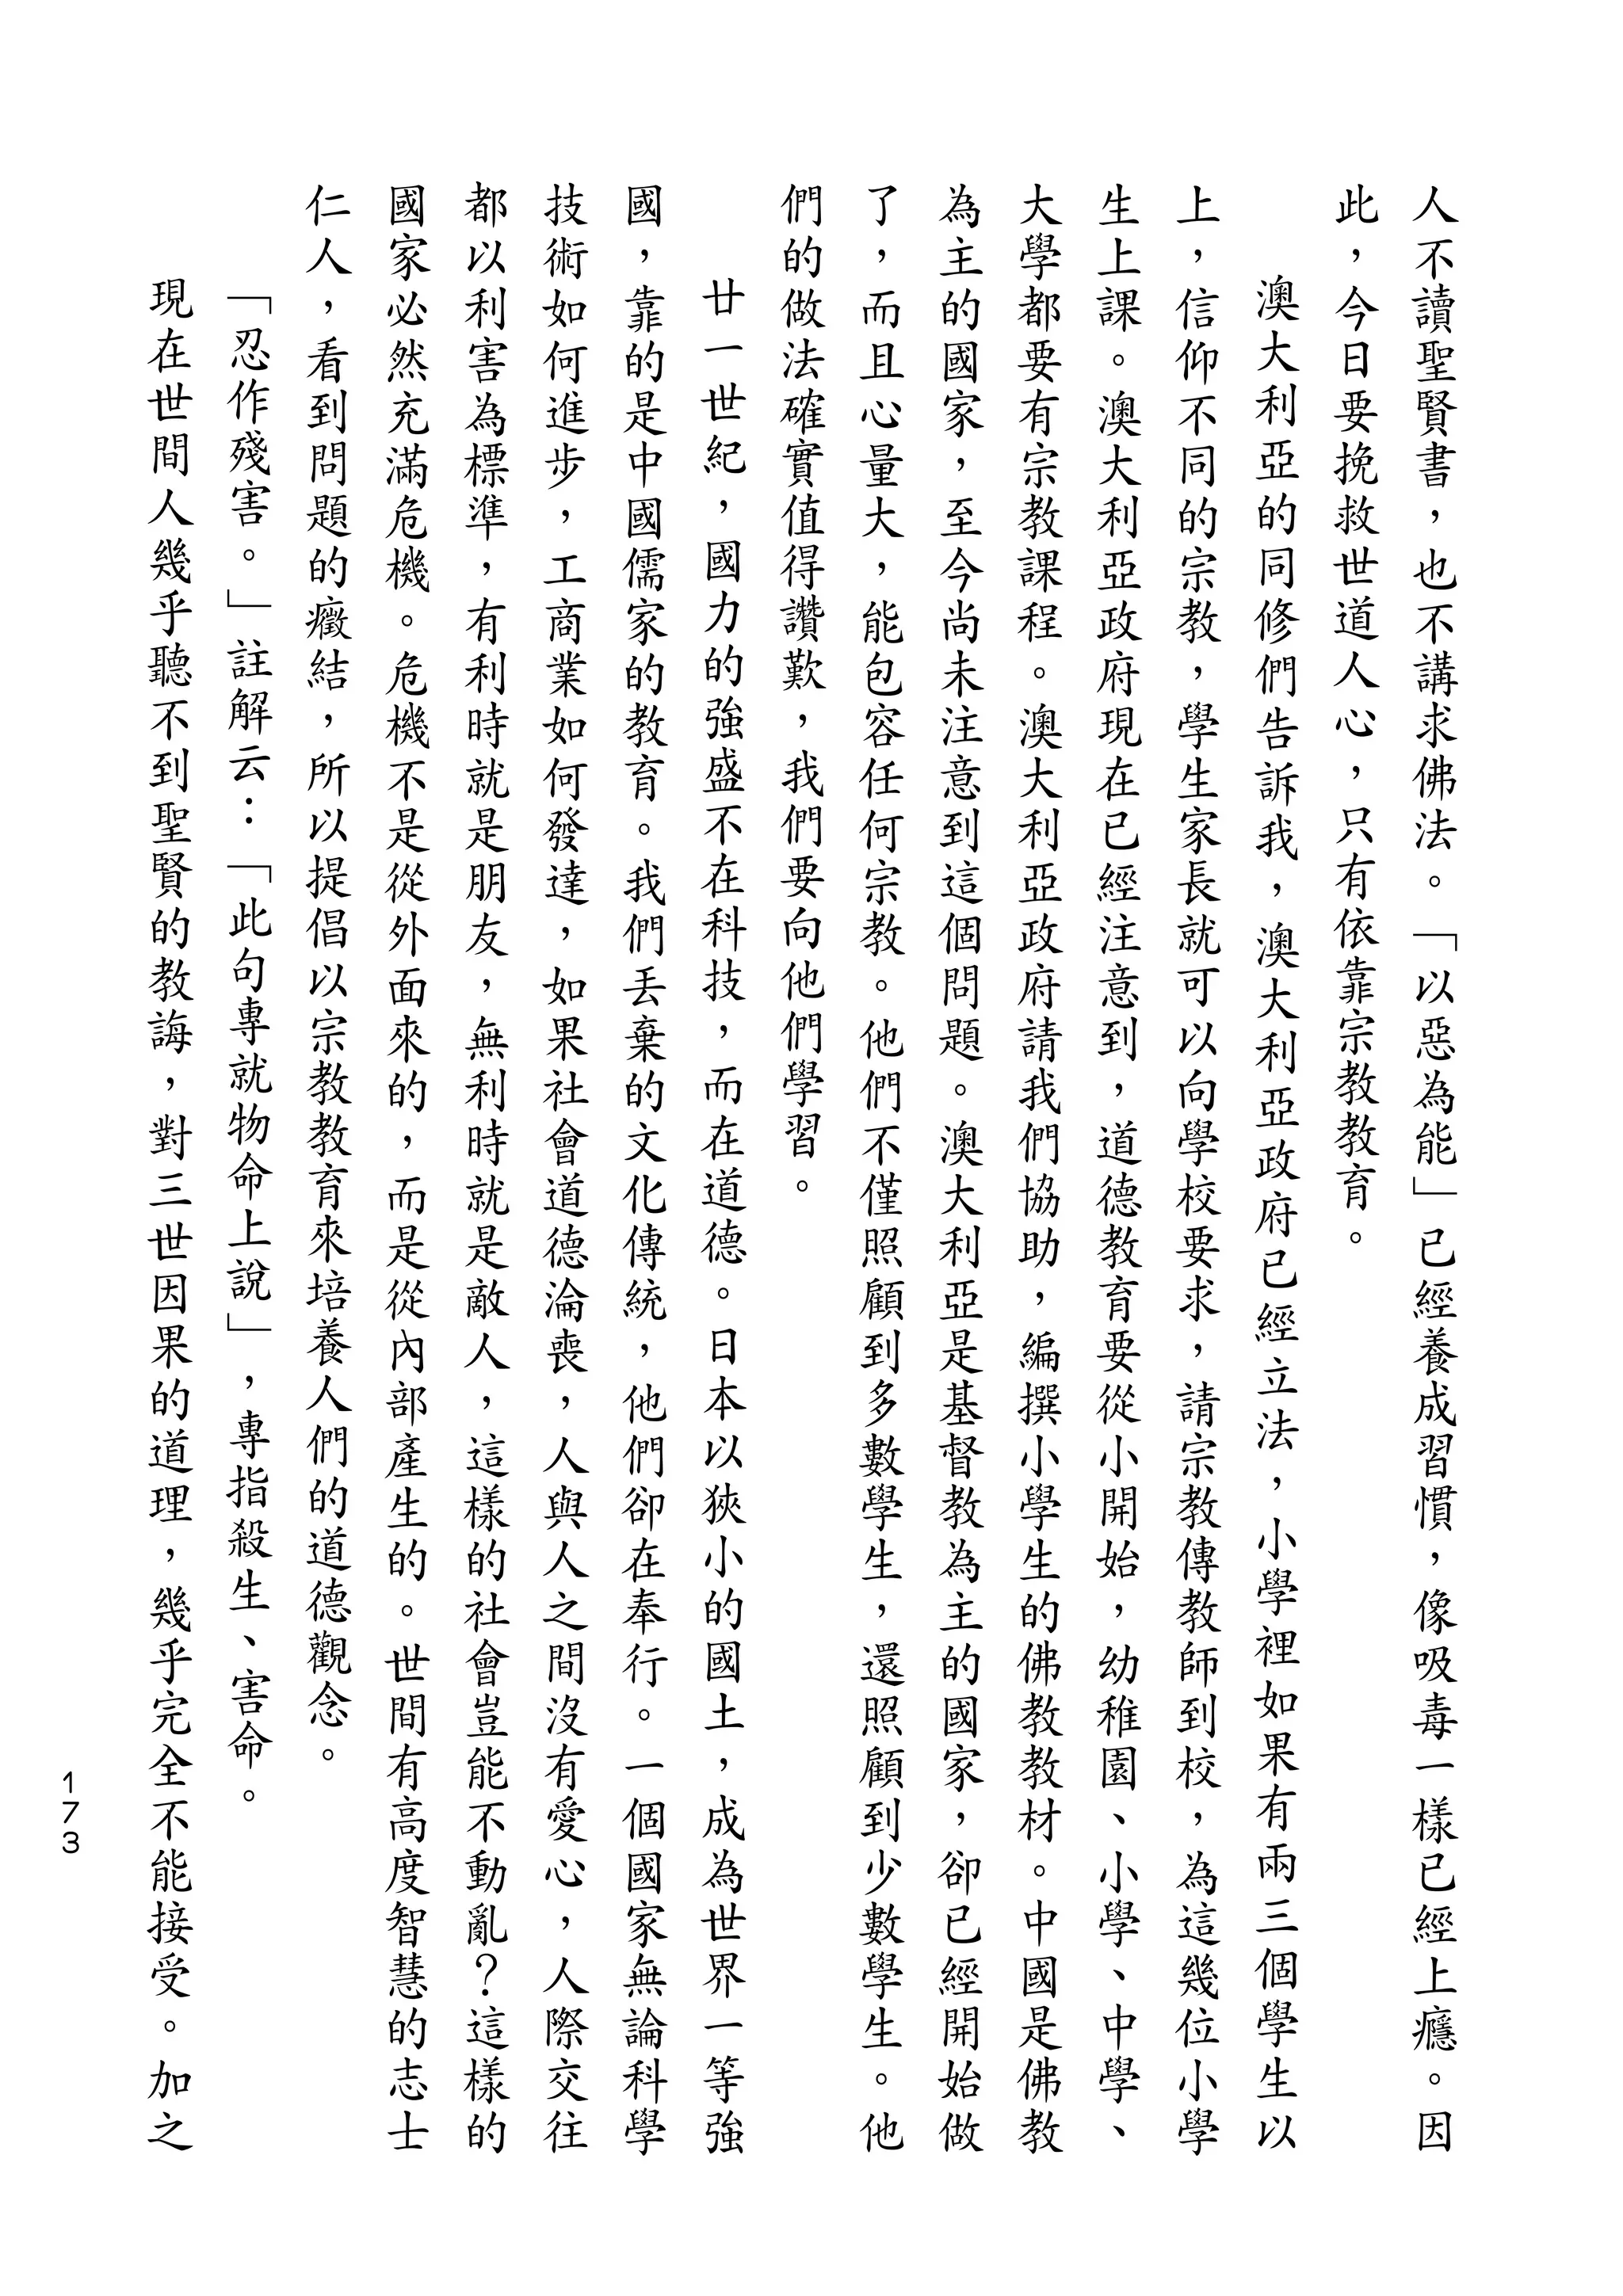 人不讀聖賢書，也不講求佛法。「以惡為能」已經養成習慣，像吸毒一樣已經上癮。因
此，今日要挽救世道人心，只有依靠宗教教育。
澳大利亞的同修們告訴我，澳大利亞政府已經立法，小學裡如果有兩三個學生以
上，信仰不同的宗教，學生家長就可以向學校要求，請宗教傳教師到校，為這幾位小學
生上課。澳大利亞政府現在已經注意到，道德教育要從小開始，幼稚園、小學、中學、
大學都要有宗教課程。澳大利亞政府請我們協助，編撰小學生的佛教教材。中國是佛教
為主的國家，至今尚未注意到這個問題。澳大利亞是基督教為主的國家，卻已經開始做
了，而且心量大，能包容任何宗教。他們不僅照顧到多數學生，還照顧到少數學生。他
們的做法確實值得讚歎，我們要向他們學習。
廿一世紀，國力的強盛不在科技，而在道德。日本以狹小的國土，成為世界一等強
國，靠的是中國儒家的教育。我們丟棄的文化傳統，他們卻在奉行。一個國家無論科學
技術如何進步，工商業如何發達，如果社會道德淪喪，人與人之間沒有愛心，人際交往
都以利害為標準，有利時就是朋友，無利時就是敵人，這樣的社會豈能不動亂？這樣的
國家必然充滿危機。危機不是從外面來的，而是從內部產生的。世間有高度智慧的志士
仁人，看到問題的癥結，所以提倡以宗教教育來培養人們的道德觀念。
「忍作殘害。」註解云：「此句專就物命上說」，專指殺生、害命。
現在世間人幾乎聽不到聖賢的教誨，對三世因果的道理，幾乎完全不能接受。加之
173